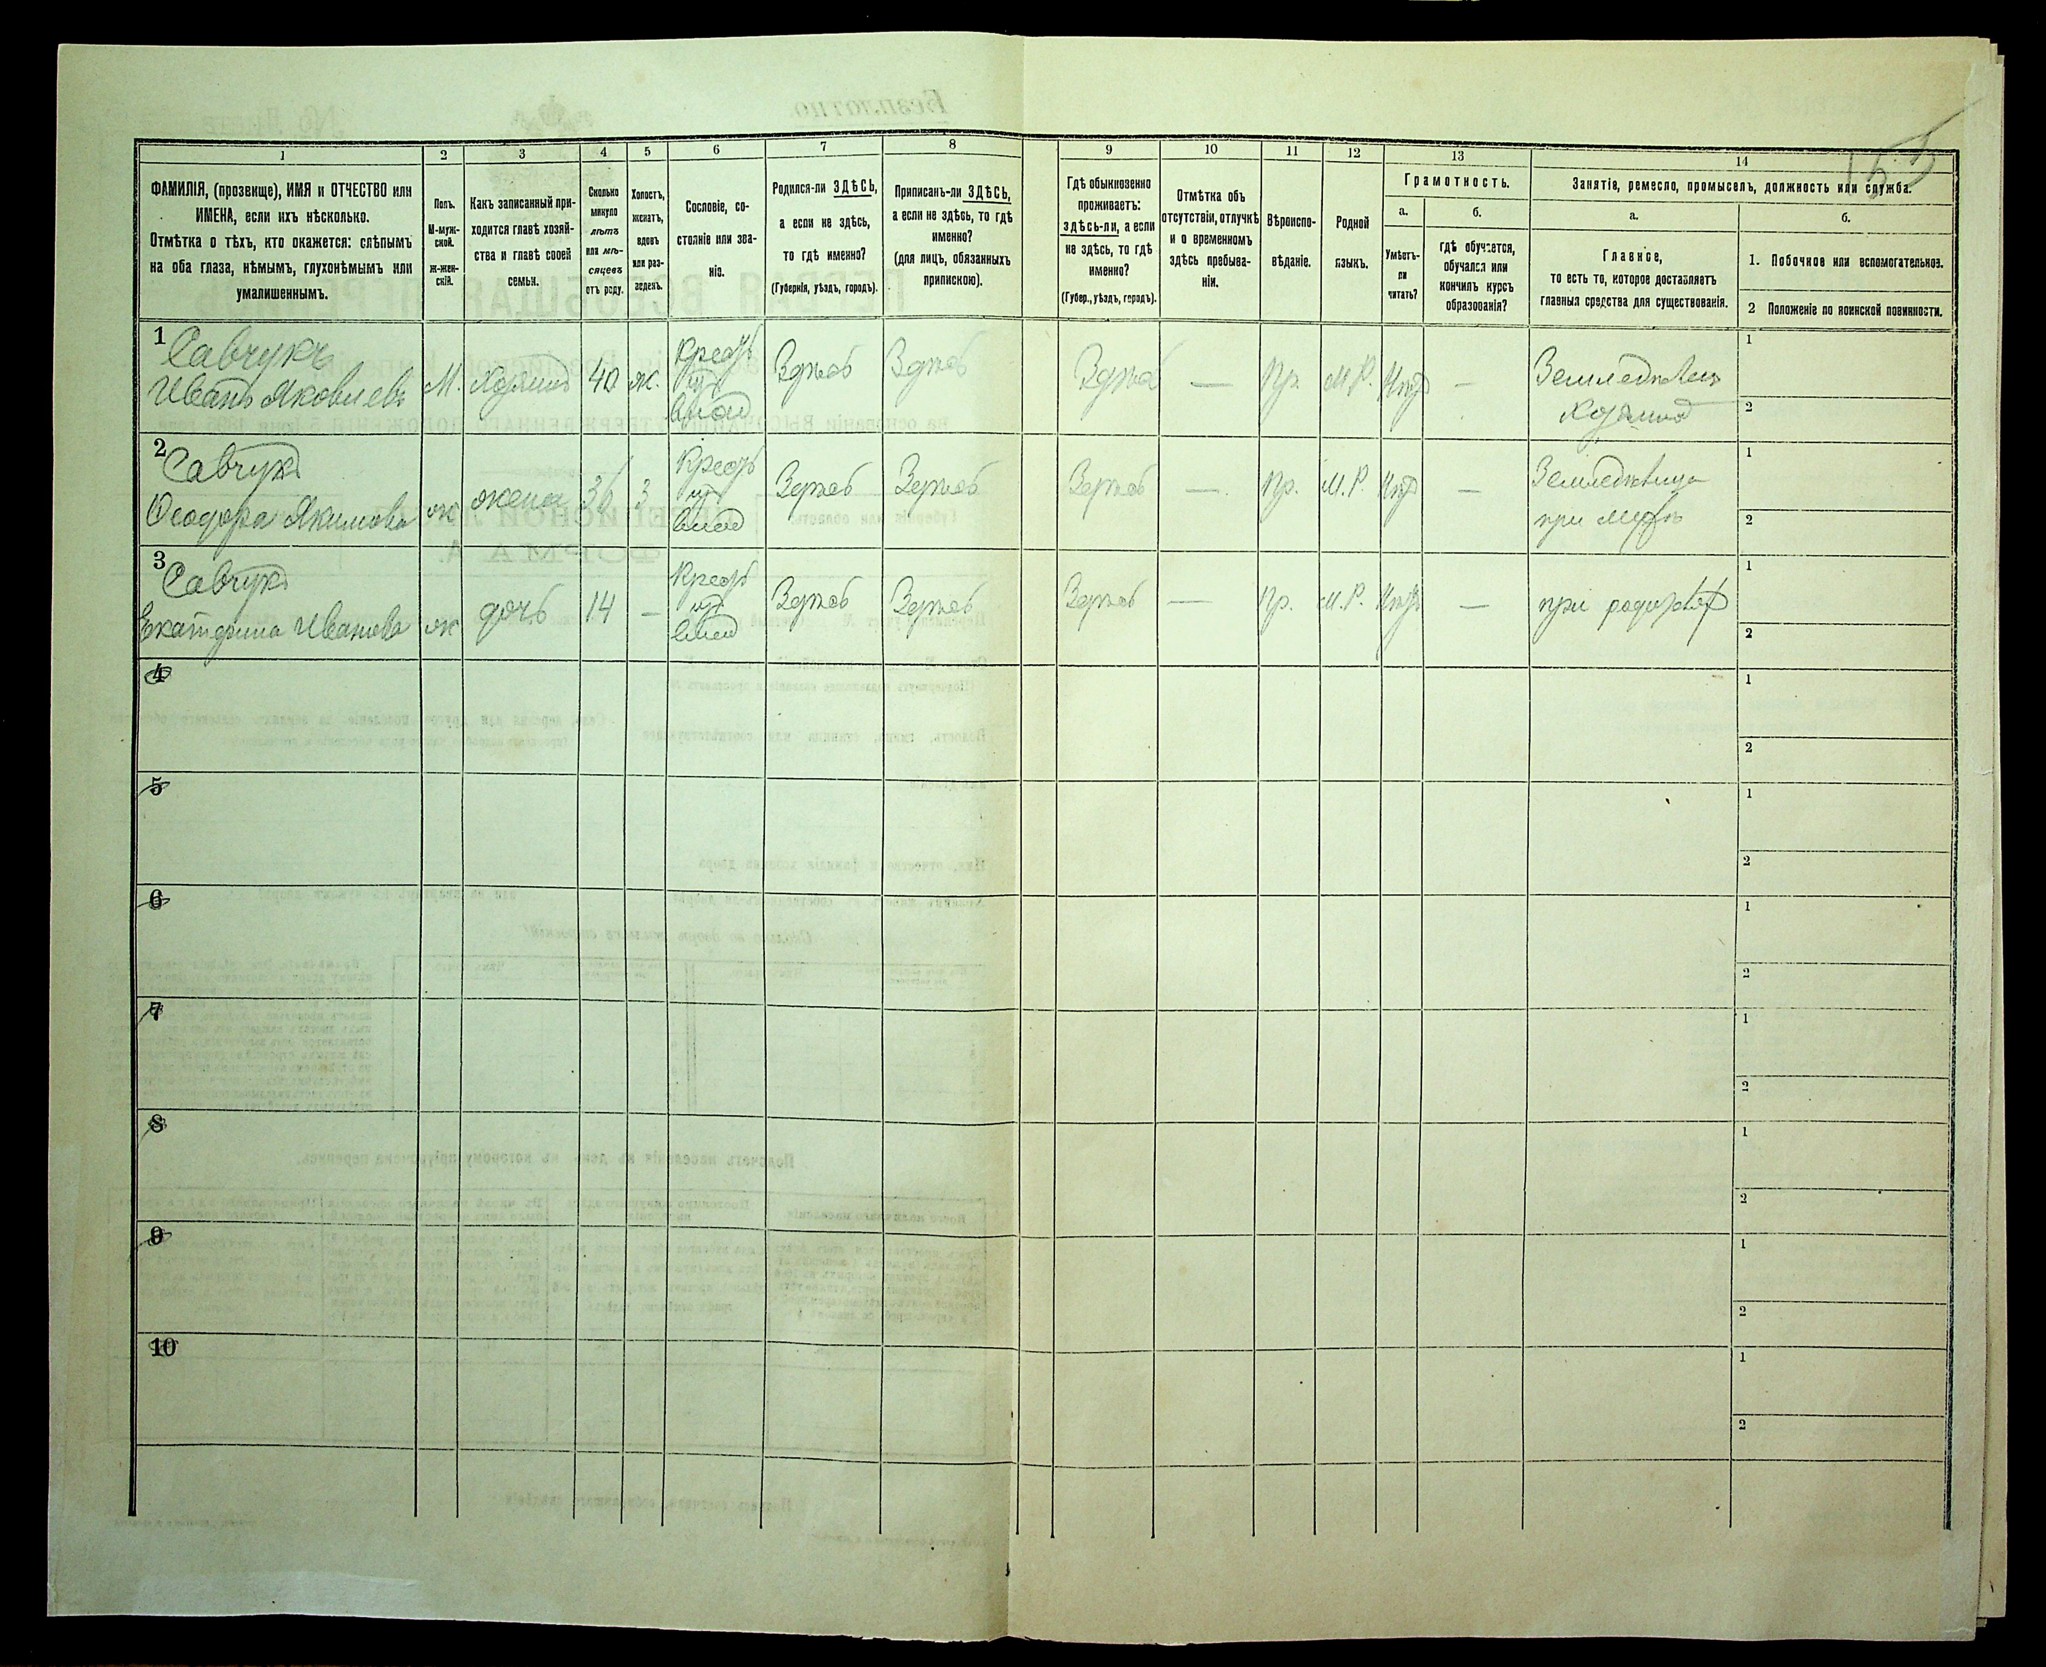 153
1
2
3
4
5
6
7
8
9
10
11
12
13
14
ФАМИЛІЯ, (прозвище), ИМЯ и ОТЧЕСТВО или
ИМЕНА, если ихъ нѣсколько.
Отмѣтка о тѣхъ, кто окажется: слѣпымъ
на оба глаза, нѣмымъ, глухонѣмымъ или
умалишеннымъ.
Полъ.
М-муж-
ской.
ж-жен-
скій.
Какъ записанный при-
ходится главѣ хозяй-
ства и главѣ своей
семьи.
Сколько
минуло
лѣтъ
или мѣ-
сяцевъ
отъ роду.
Холостъ,
женатъ,
вдовъ
или раз-
веденъ.
Сословіе, со-
стояніе или зва-
ніе.
Родился-ли ЗДѢСЬ,
а если не здѣсь,
то гдѣ именно?
(Губернія, уѣздъ, городъ).
Приписанъ-ли ЗДѢСЬ,
а если не здѣсь, то гдѣ
именно?
(для лицъ, обязанныхъ
припискою).
Гдѣ обыкновенно
проживаетъ:
здѣсь-ли, а если
не здѣсь, то гдѣ
именно?
(Губер., уѣздъ, городъ).
Отмѣтка объ
отсутствіи, отлучкѣ
и о временномъ
здѣсь пребыва-
ніи.
Вѣроиспо-
вѣданіе.
Родной
языкъ.
Грамотность.
а.
б.
Умѣетъ-
ли
читать?
гдѣ обучается,
обучался или
кончилъ курсъ
образованія?
Занятіе, ремесло, промыселъ, должность или служба.
а.
б.
Главное,
то есть то, которое доставляетъ
главныя средства для существованія.
1. Побочное или вспомогательное.
2 Положеніе по воинской повинности.
1
Савчукъ
Иванъ Яковлевъ
М.
Хозяинъ
40
ж.
Здѣсь
Здѣсь
Здѣсь
—
Пр.
М.Р.
—
Земледѣлецъ
Хозяинъ
1
2
2
Савчукъ
Ѳеодора Якимова
ж
жена
36
З
Здѣсь
Здѣсь
Здѣсь
—
Пр.
М.Р.
—
при мужѣ
1
2
3
Савчукъ
Екатерина Иванова
ж
дочь
14
—
Здѣсь
Здѣсь
Здѣсь
—
Пр.
М.Р.
—
1
2
4
1
2
5
1
2
6
1
2
7
1
2
8
1
2
9
1
2
10
1
2